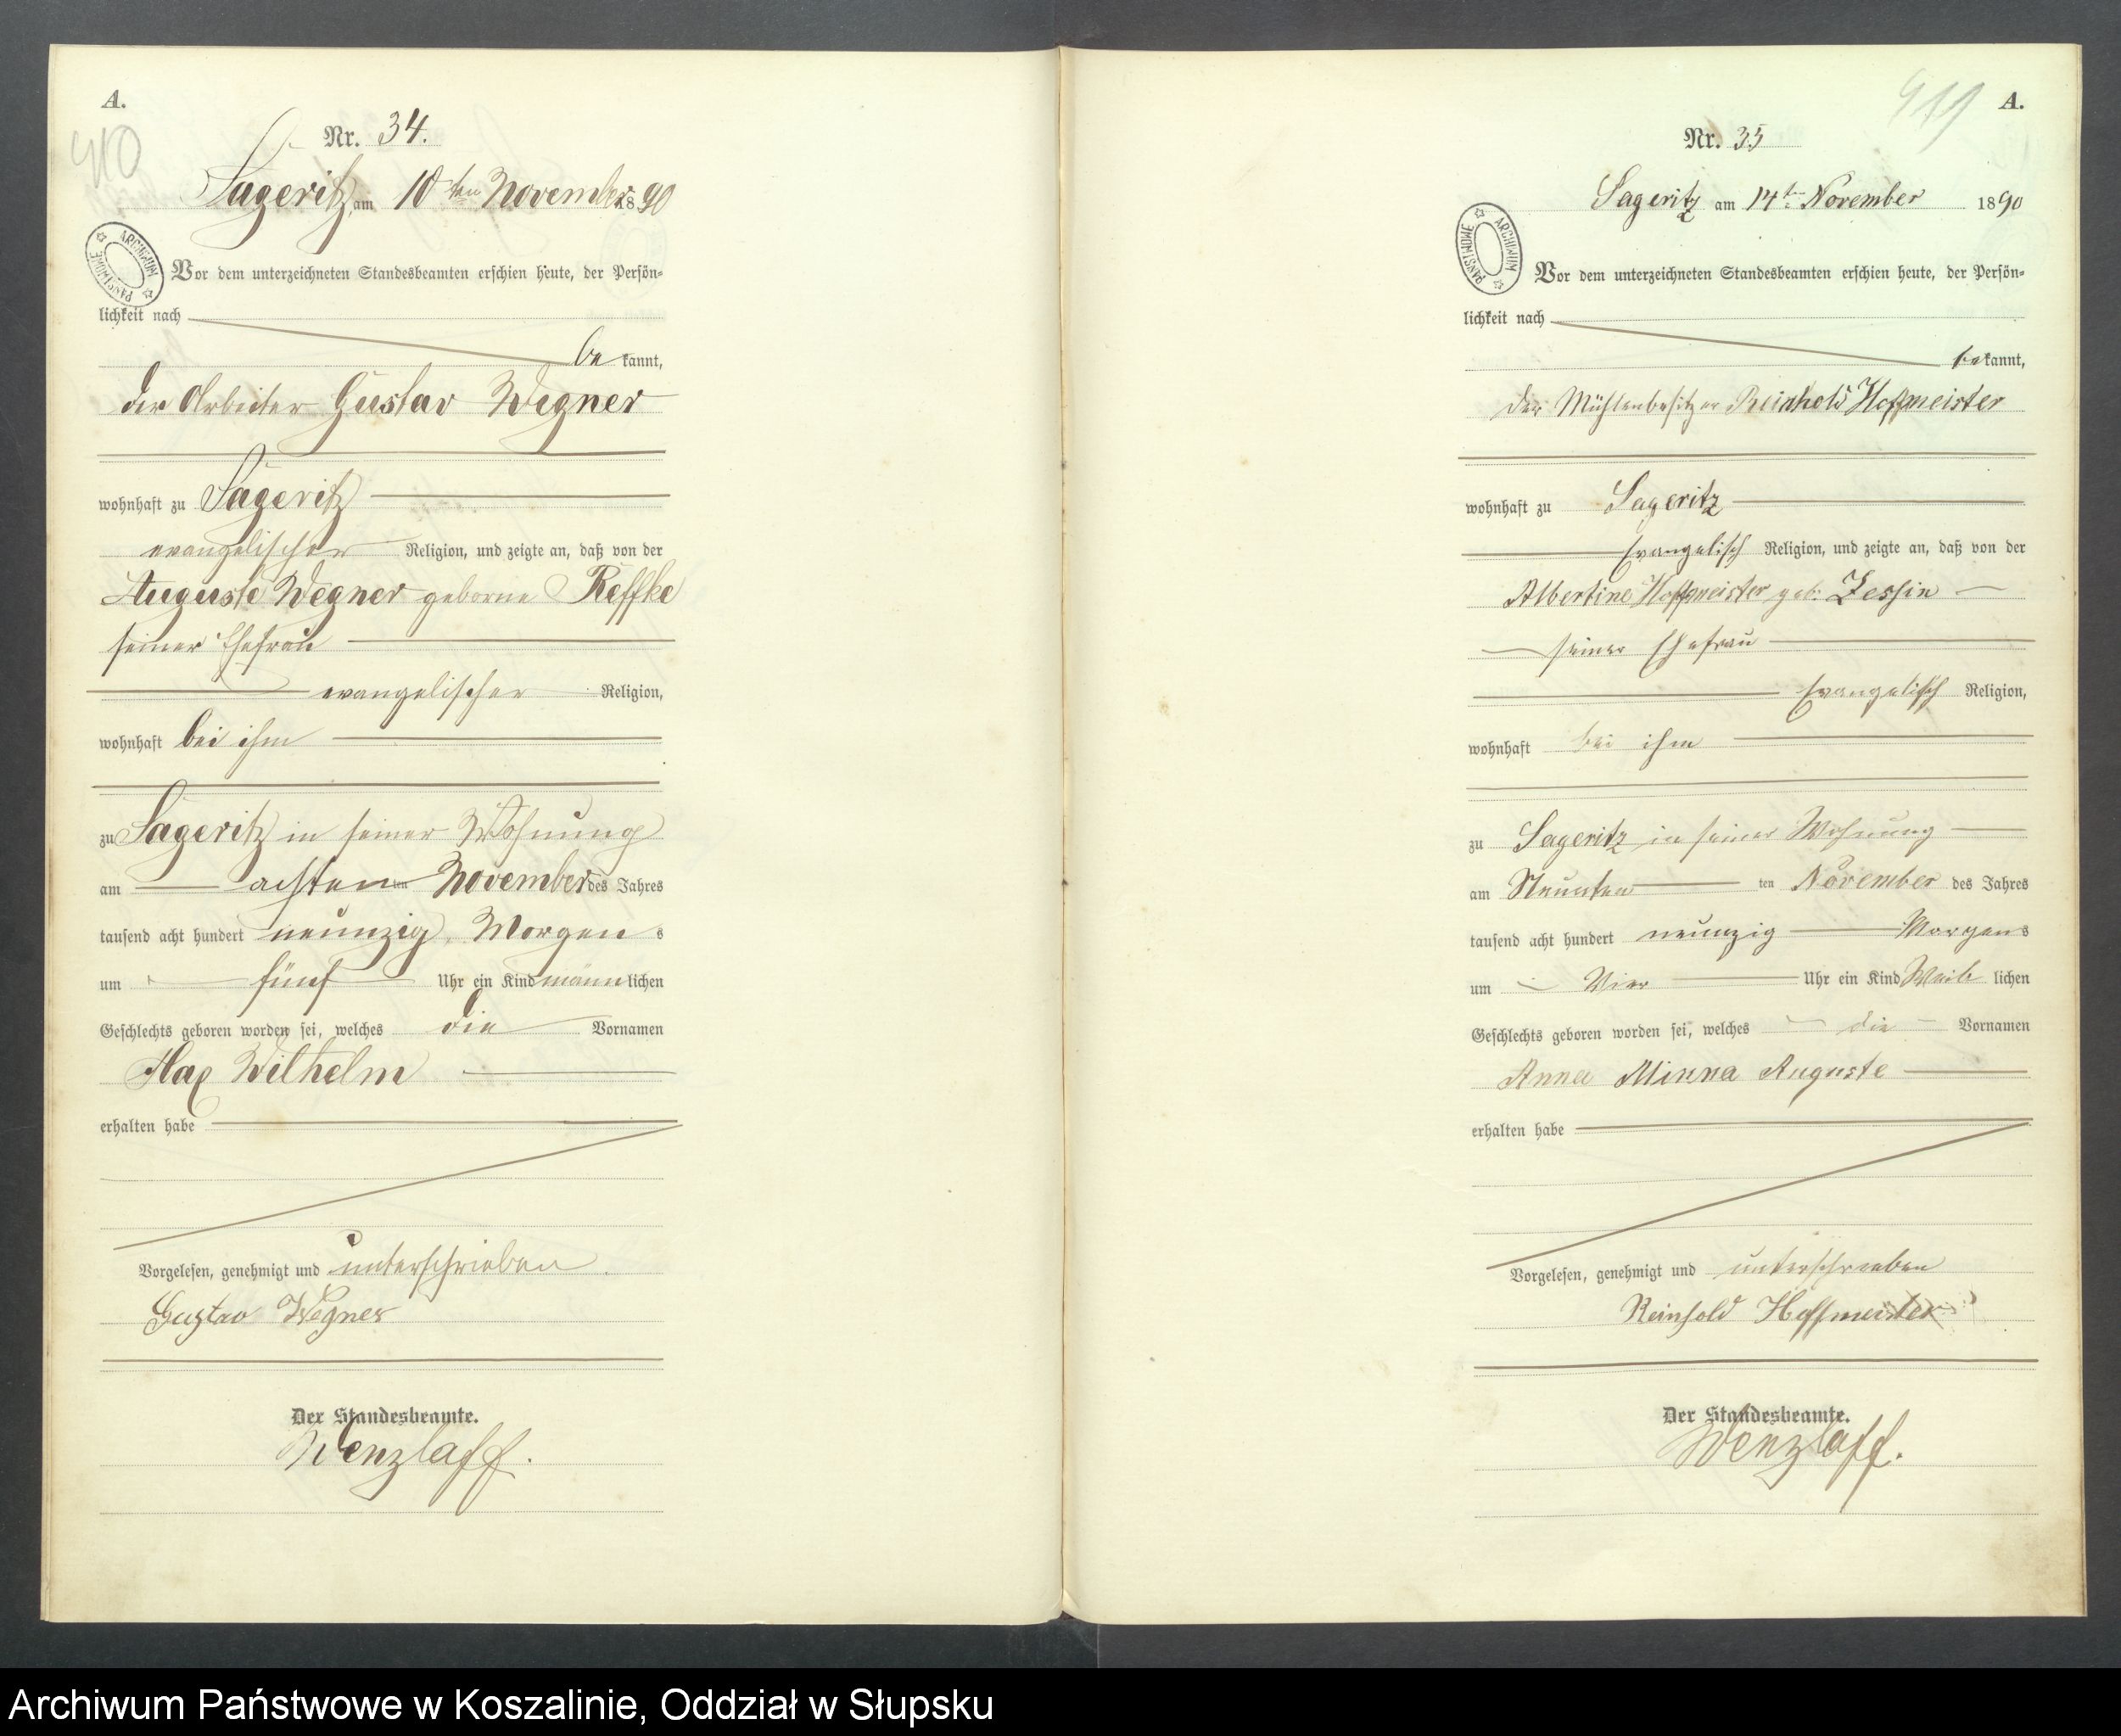 A.
410
Nr. 34.
Sageritz, am 10ten November 1890
ARCHIWUM PAŃSTWOWE
Vor dem unterzeichneten Standesbeamten erschien heute, der Persön-
lichkeit nach
bekannt,
der Arbeiter Gustav Wegner
wohnhaft zu Sageritz
evangelischer Religion, und zeigte an, daß von der
Auguste Wegner geborne Reffke
seiner Ehefrau
evangelischer Religion,
wohnhaft bei ihm
zu Sageritz in seiner Wohnung
am achten ten November des Jahres
tausend acht hundert neunzig, Morgens
um fünf Uhr ein Kind männlichen
Geschlechts geboren worden sei, welches die Vornamen
Max Wilhelm
erhalten habe
Vorgelesen, genehmigt und unterschrieben
Gustav Wegner
Der Standesbeamte.
Wenzlaff.
A.
Nr. 35
Sageritz am 14t November 1890
ARCHIWUM PAŃSTWOWE
Vor dem unterzeichneten Standesbeamten erschien heute, der Persön-
lichkeit nach
bekannt,
der Mühlenbesitzer Reinhold Hoffmeister
wohnhaft zu Sageritz
Evangelisch Religion, und zeigte an, daß von der
Albertine Hoffmeister geb. Zessin
seiner Ehefrau
Evangelisch Religion,
wohnhaft bei ihm
zu Sageritz in seiner Wohnung
am Neunten ten November des Jahres
tausend acht hundert neunzig Morgens
um Vier Uhr ein Kind Weiblichen
Geschlechts geboren worden sei, welches die Vornamen
Anna Minna Auguste
erhalten habe
Vorgelesen, genehmigt und unterschrieben
Reinhold Hoffmeister
Der Standesbeamte.
Wenzlaff.
Archiwum Państwowe w Koszalinie, Oddział w Słupsku